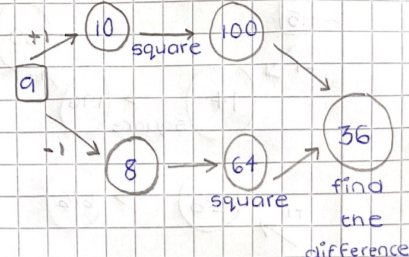 +1
10
square
100
9
-1
8
64
square
36
find
the
difference